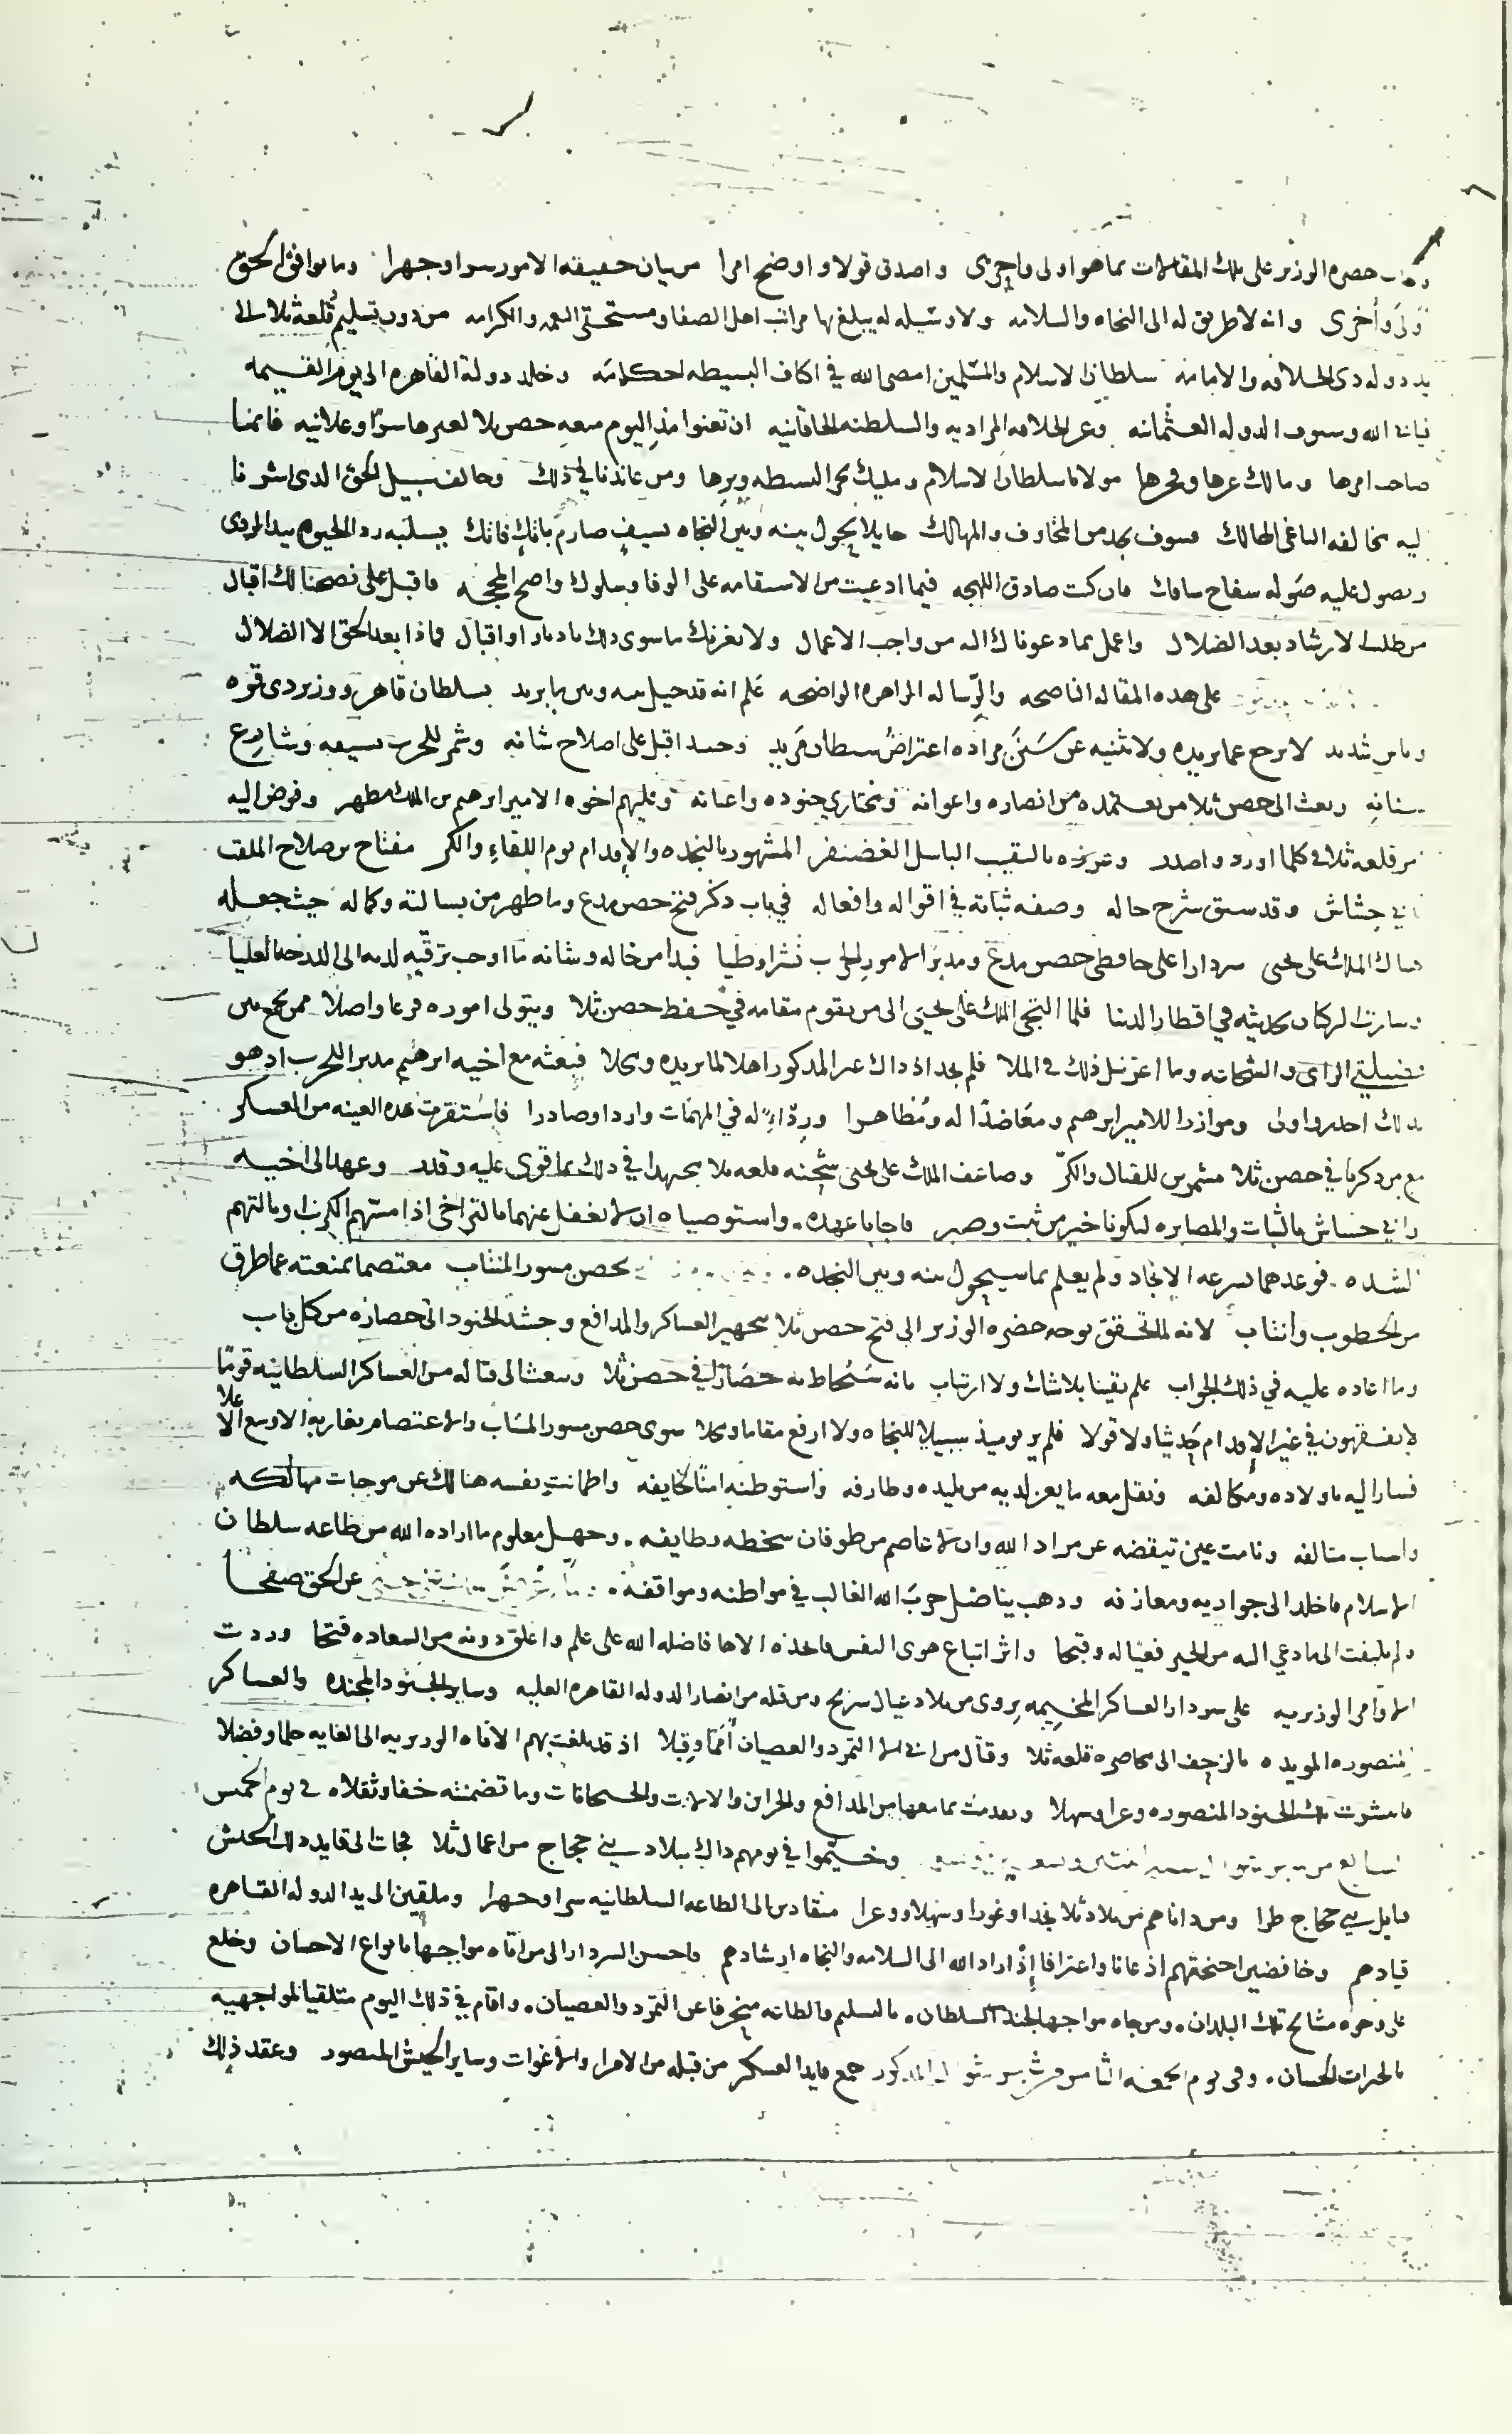 حضره الوزير على تلك المقامات بما هو اولى واحرى واصدق قولا واوضح امرا من بيان حقيقة الامور سرا وجهرا وما يوافق الحق
وأخرى وانه لا طريق له الى النجاه والسلامه ولا وسيله له يبلغ بها مراتب اهل الصفا ومستحقى النعمه والكرامه من دون تسليم قلعة ثلا الى
يد دوله ذى الخلافه والامامه سلطان الاسلام والمسلمين امضى الله في اكناف البسيطه احكامه وخلد دولة القاهره الى يوم القيمه
الله وسيوف الدوله العثمانيه وعز الخلافه المراديه والسلطنه الخاقانيه ان تعنوا مذ اليوم حصن ثلا لغيرها سرًا وعلانيه فانما
صاحب امرها ومالك عزها وفخرها مولانا سلطان الاسلام ومليك بحر البسيطه وبرها ومن عاندنا في ذلك وخالف سبيل الحق الذى اشرنا
ليه مخالفه الباغى الهالك فسوف يجد من المخاوف والمهالك حايلا يحول بينه وبين النجاه بسيف صارم باتك فاتك يسلبه رد الحيوه بيد الردى
ويصول عليه صوله سفاح سافك فان كنت صادق اللهجه فيما ادعيت من الاستقامه على الوفا وسلوك واضح المحجه فاقبل على نصحنا لك اقبال
من طلب الارشاد بعد الضلال واعمل بما دعوناك اليه من واجب الاعمال ولا يغرنك ما سوى ذلك بادبار او اقبال فماذا بعد الحق الا الضلال
على هذه المقاله الناصحه والرساله الزاهره الواضحه علم انه قد حيل بينه وبين ما يريد بسلطان قاهر ووزير ذى قوه
وباس شديد لا يرجع عما يريده ولا يثنيه عن سَنَن مراده اعتراض شيطان مريد وحينئذ اقبل على اصلاح شانه وشمر للحرب بسيفه وشارع
سنانه وبعث الى حصن ثلا من يعتمده من انصاره واعوانه ومختاري جنوده واعيانه وعليهم اخوه الامير ابرهيم بن الملك مطهر وفوض اليه
امر قلعه ثلا في كلما اورد واصدر وعززه بالنقيب الباسل الغضنفر المشهور بالنجده والاقدام يوم اللقاء والكر مفتاح بن صلاح الملقب
حشاش وقد سبق شرح حاله وصفه ثباته في اقواله وافعاله في باب ذكر فتح حصن مدع وما ظهر من بسالته وكماله حيث جعله
هناك الملك على يحيى سردارا على حافظى حصن مدع ومدبر الامور الحرب نشرا وطيا فبدا من حاله وشانه ما اوجب ترقيه لديه الى الدرجه العليا
وسارت الركبان بحديثه في اقطار الدنيا فلما التجى الملك على يحيى الى من يقوم مقامه في حفظ حصن ثلا ويتولى اموره فرعا واصلا ممن يجمع بين
فضيلتي الراى والشجاعه وما اعتزل ذلك فى الملا فلم يجد اذ ذاك غير المذكور اهلا لما يريده وكلا فبعثه مع اخيه ابرهيم مدبرا للحرب اذ هو
بذلك احرى واولى وموازرا للامير ابرهيم ومعاضدًا له ومُظاهرا ورِدْاءً له في المهمات واردا وصادرا فاستقرت هذه العينه من العسكر
مع من ذكرنا في حصن ثلا مشمرين للقتال والكرّ وضاعف الملك على يحيى شحنه قلعه ثلا مجتهدا في ذلك بما قوى عليه وقدر وعهد الى اخيه
حشاش بالثبات والمصابره ليكونا خير من ثبت وصبر فاجابا عهده. واستوصياه ان لا يغفل عنهما بالتراخى اذا مستهم الكرب او نالتهم
الشده. فوعدهما بسرعه الانجاد ولم يعلم بما سيحول بينه وبين النجده. بحصن مسور المنتاب معتصما بمنعته عما طرق
من الخطوب وانتاب لانه لما تحقق توجه حضره الوزير الى فتح حصن ثلا بتجهيز العساكر والمدافع وحشد الجنود الى حصاره من كل باب
وما اعاده عليه في ذلك الجواب علم يقينا بلا شك ولا ارتياب بانه سَيُحاط به حصارًا في حصن ثلا ويبعث الى قتاله من العساكر السلطانيه قومًا
لا يفقهون في غير الاقدام حديثا ولا قولا فلم ير يوميذ سبيلا للنجاه ولا ارفع مقاما وكلا سوى حصن مسور المنتاب والاعتصام بغاربه الاوسع الاعلا
فسار اليه باولاده ومكالفه ونقل معه ما يعز لديه من تليده وطارفه واستوطنه امنًا لخايفه واطمانت نفسه هنالك عن موجبات مهالكه
واسباب متالفه ونامت عين تيقظه عن مراد الله وان لا عاصم من طوفان سخطه وطايفه. وجهل معلوم ما اراده الله من طاعه سلطان
الاسلام فاخلد الى جواريه ومعازفه وذهب يناضل حربَ الله الغالب في مواطنه ومواقفه. عن الحق صفحا
ولم يلتفت الى ما دعي اليه من الخير فعيًا له وقبحا واثر اتباع هوى النفس فاضله الله على علم واغلق دونه من السعاده فتحا وردت
الاوامر الوزيريه على سردار العساكر المخيمه من بلاد عيال سريح ومن قبله من انصار الدوله القاهره العليه وساير الجنود المجنده والعساكر
المنصوره المويده بالزحف الى محاصره قلعه ثلا وقتال من التمرد والعصيان اذ قد بلغت بهم الاناه الوزيريه الى الغايه حلما وفضلا
تلك الجنود المنصوره وعرا وسهلا وتقدمت بما معها من المدافع والخزاين والالات وما تضمنته خفا وثقلا في يوم الخميس
وخيّموا في يومهم ذاك ببلاد بني حجاج من اعمال ثلا فجات الى قايد ذلك الجيش
قبايل بني حجاج طرا ومن داناهم من بلاد ثلا نجدا وغورا وسهلا ووعرا منقادين الى الطاعه السلطانيه سرا وجهرا وملقين الى يد الدوله القاهره
قيادهم وخافضين اجنحتهم اذعانا واعترافا إذ اراد الله الى السلامه والنجاه ارشادهم فاحسن السردار الى من اتاه مواجها بانواع الاحسان وخلع
على وجوه مشايخ تلك البلدان. ومن جاه مواجها لجند السلطان. بالتسليم والطاعه منحرفا عن التمرد والعصيان. واقام في ذلك اليوم متلقيا لمواجهيه
بالخيرات الحسان. وفى يوم الجمعه الثامن من شهر شوال المذكور جمع قايد العسكر من قبله من الامرا والاغوات وساير الجيش المنصور وعقد ذلك